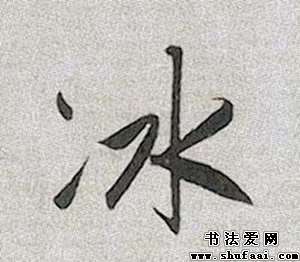 冰
书法爱网
www.shufaai.com